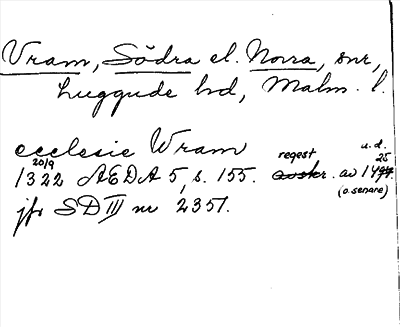 Vram, Södra el. Norra, snr,
Luggude hd, Malm. l.
ecclesie Wram
20/9 regest u.d.
1322 AEDA 5, s. 155. av 1425
(o. senare)
jfr SD III nr 2351.